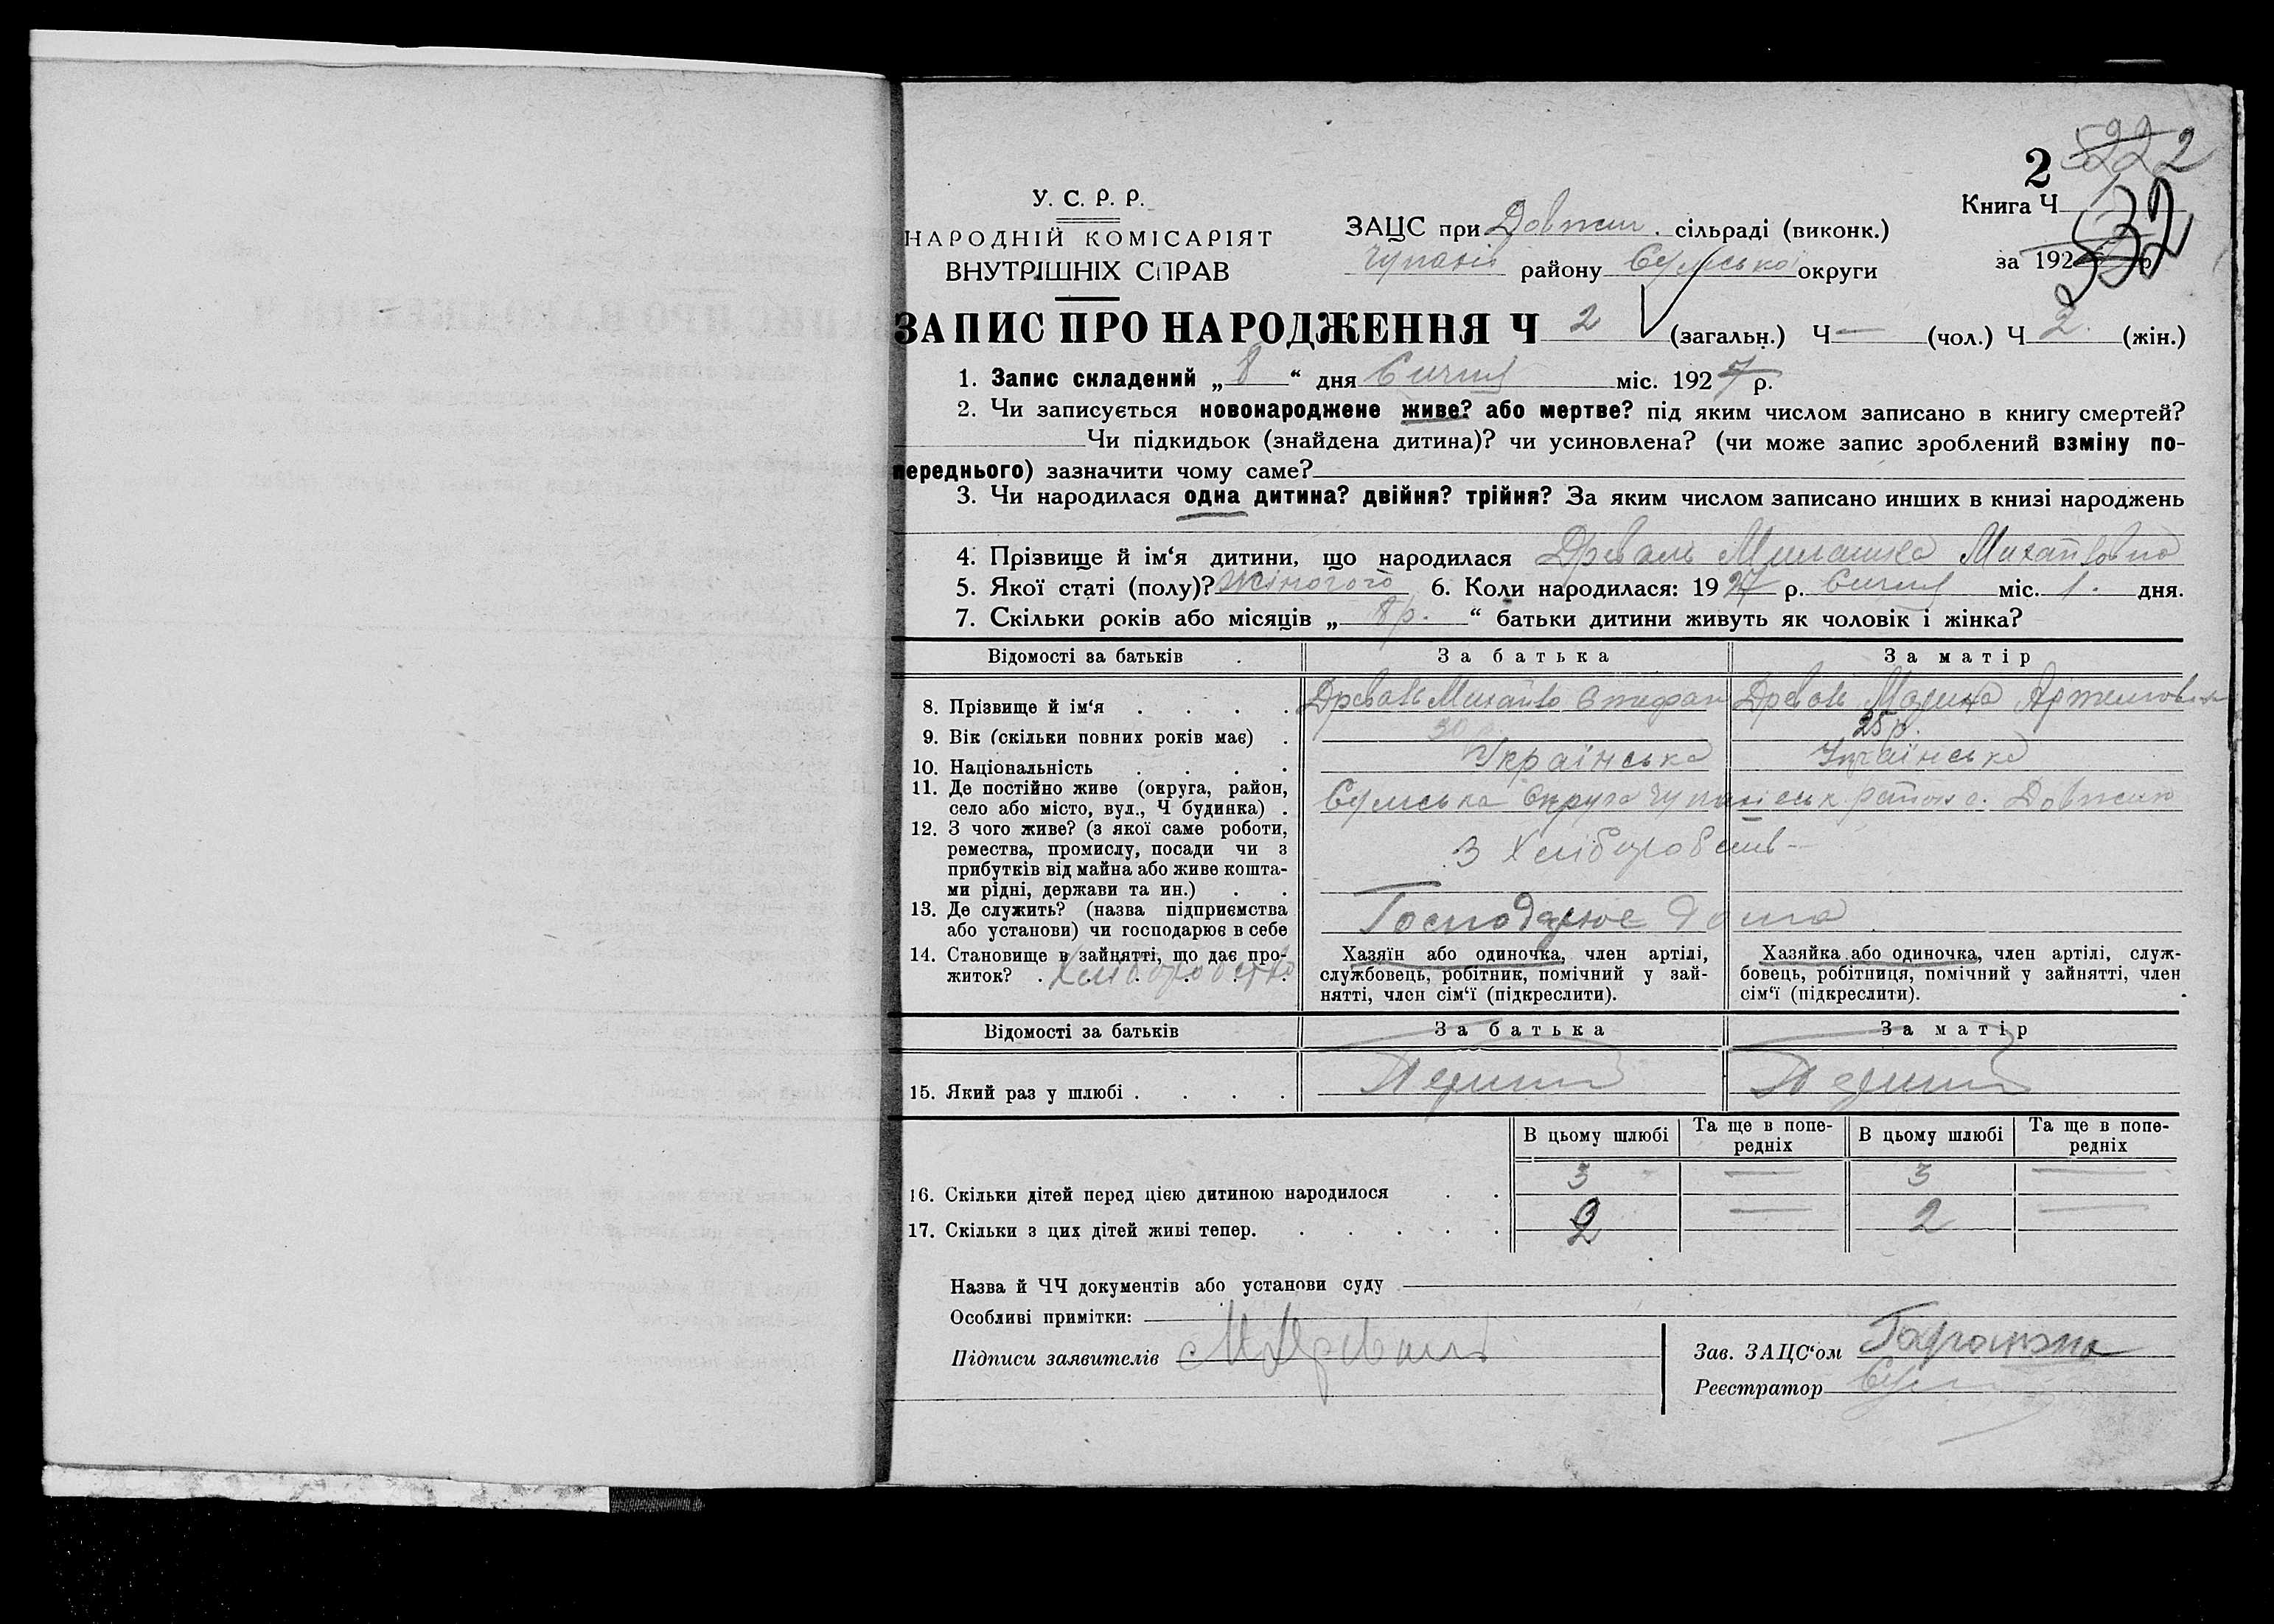 2 222
У. С. Р. Р.
НАРОДНІЙ КОМІСАРІЯТ
ВНУТРІШНІХ СПРАВ
ЗАЦС при Довжик. сільраді (виконк.)
району Сумської округи
Книга Ч 1
532
за 192 р.
ЗАПИС ПРО НАРОДЖЕННЯ Ч 2 (загальн.) Ч — (чол.) Ч 2. (жін.)
1. Запис складений „ 8 “ дня Січня міс. 1927 р.
2. Чи записується новонароджене живе? або мертве? під яким числом записано в книгу смертей?
Чи підкидьок (знайдена дитина)? чи усиновлена? (чи може запис зроблений взміну по-
переднього) зазначити чому саме?
3. Чи народилася одна дитина? двійня? трійня? За яким числом записано инших в книзі народжень
4. Прізвище й ім‘я дитини, що народилася Древаль Милашка Михайловна
5. Якої статі (полу)? Жіночого 6. Коли народилася: 1927 р. Січня міс. 1. дня.
7. Скільки років або місяців „ 8 р. “ батьки дитини живуть як чоловік і жінка?
Відомості за батьків За батька За матір
8. Прізвище й ім‘я Древаль Михайло Стефан Древаль Марина Артемовна
9. Вік (скільки повних років має) 30 25 р.
10. Національність Українська Українська
11. Де постійно живе (округа, район,
село або місто, вул., Ч будинка) Сумська округа район с. Довжик
12. З чого живе? (з якої саме роботи,
ремества, промислу, посади чи з
прибутків від майна або живе кошта-
ми рідні, держави та ин.) З Хліборобств
13. Де служить? (назва підприємства
або установи) чи господарює в себе Господарює дома
14. Становище в зайнятті, що дає про-
житок? Хліборобство
Хазяїн або одиночка, член артілі,
службовець, робітник, помічний у зай-
нятті, член сім‘ї (підкреслити).
Хазяйка або одиночка, член артілі, служ-
бовець, робітниця, помічний у зайнятті, член
сім‘ї (підкреслити).
Відомості за батьків За батька За матір
15. Який раз у шлюбі Перший Перший
В цьому шлюбі Та ще в попе-
редніх В цьому шлюбі Та ще в попе-
редніх
16. Скільки дітей перед цією дитиною народилося 3 — 3 —
17. Скільки з цих дітей живі тепер. 2 — 2 —
Назва й ЧЧ документів або установи суду
Особливі примітки:
Підписи заявителів М Древаль
Зав. ЗАЦС‘ом
Реєстратор